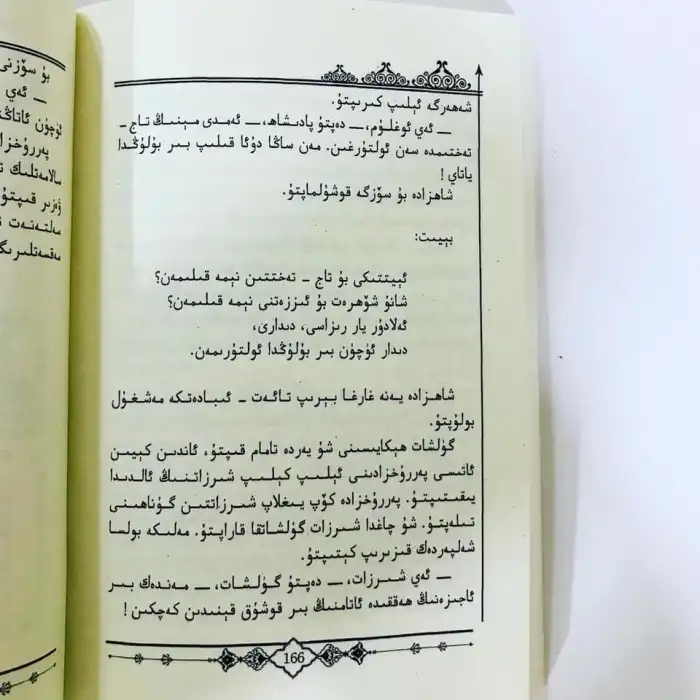 شەھەرگە ئېلىپ كىرىپتۇ.
— ئەي ئوغلۇم، — دەپتۇ پادىشاھ، — ئەمدى مېنىڭ تاج -
تەختىمدە سەن ئولتۇرغىن. مەن ساڭا دۇئا قىلىپ بىر بۇلۇڭدا
ياتاي!
شاھزادە بۇ سۆزگە قوشۇلماپتۇ.
بېيىت:
ئېيىتتىكى بۇ تاج - تەختتىن نېمە قىلىمەن؟
شانۇ شۆھرەت بۇ ئىززەتنى نېمە قىلىمەن؟
ئەلادۇر يار رىزاسى، دىدارى،
دىدار ئۈچۈن بىر بۇلۇڭدا ئولتۇرىمەن.
شاھزادە يەنە غارغا بېرىپ تائەت - ئىبادەتكە مەشغۇل
بولۇپتۇ.
گۈلشات ھېكايىسىنى شۇ يەردە تامام قىپتۇ، ئاندىن كېيىن
ئاتىسى پەررۇخزادىنى ئېلىپ كېلىپ شىرزاتنىڭ ئالدىدا
يىقىتىپتۇ. پەررۇخزادە كۆپ يىغلاپ شىرزاتتىن گۇناھىنى
تىلەپتۇ. شۇ چاغدا شىرزات گۈلشاتقا قاراپتۇ. مەلىكە بولسا
شەلپەردەك قىزىرىپ كېتىپتۇ.
— ئەي شىرزات، — دەپتۇ گۈلشات، — مەندەك بىر
ئاجىزەنىڭ ھەققىدە ئاتامنىڭ بىر قوشۇق قېنىدىن كەچكىن!
166
بۇ سۆزنى
— ئەي
ئۈچۈن ئاتاڭنى
پەررۇخزا
سالامەتلىك
ۋەزىر قىپتۇ
سەلتەنەت
مەقسەتلىرىگ